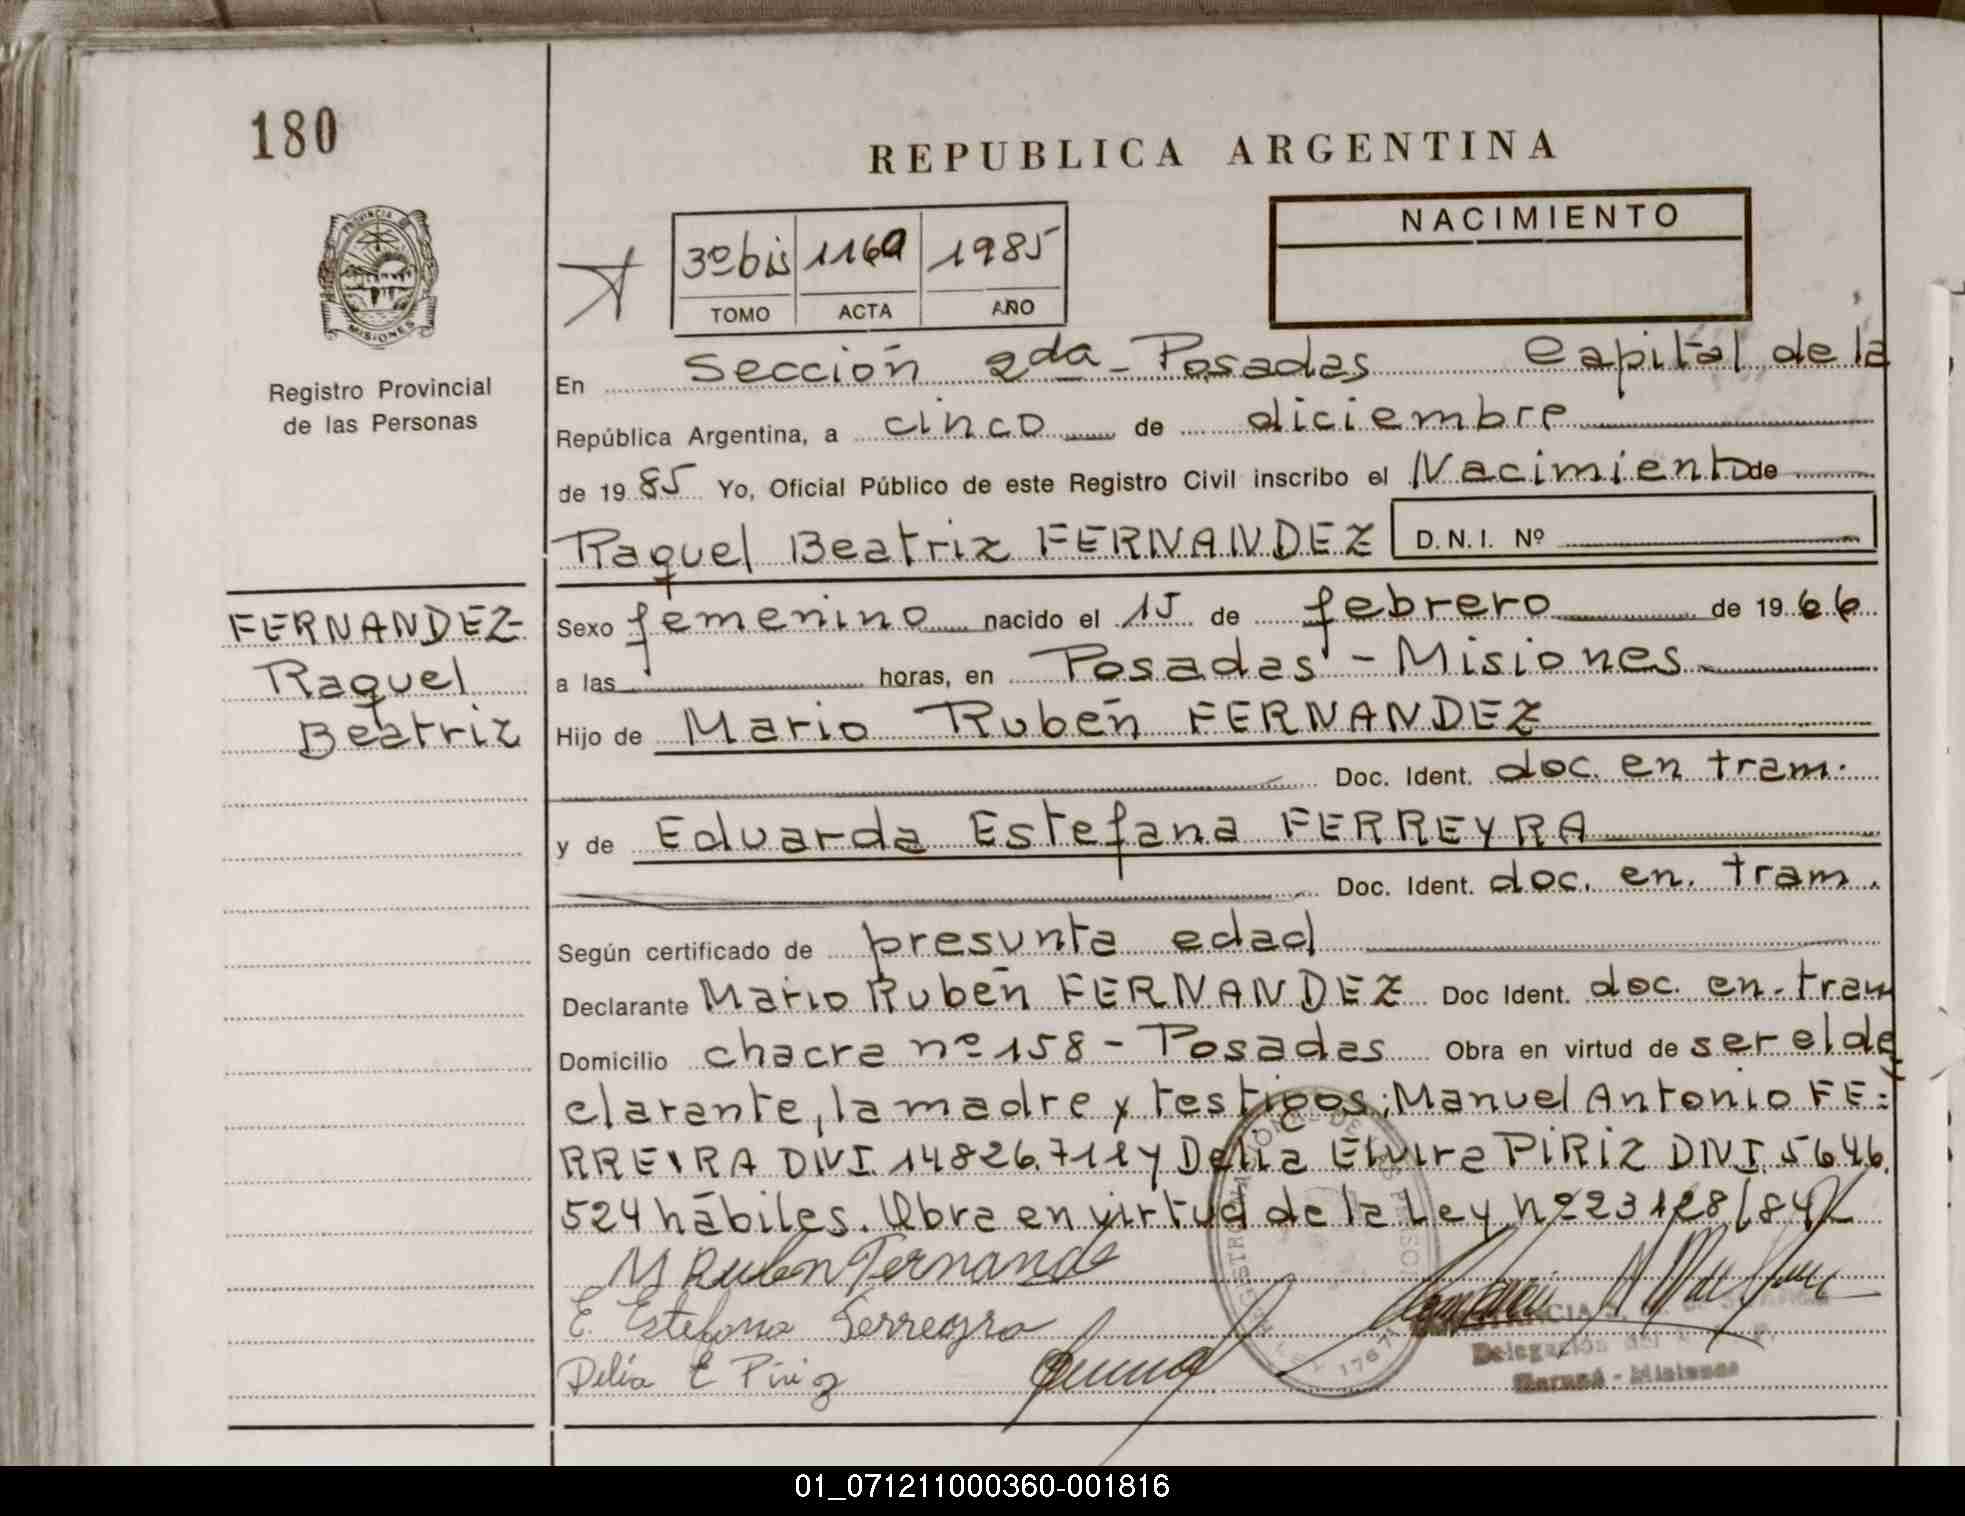 180
REPUBLICA ARGENTINA
PROVINCIA DE
MISIONES
Registro Provincial
de las Personas
3º bis 1160 1985
TOMO ACTA AÑO
NACIMIENTO
En Sección 2da - Posadas Capital de la
República Argentina, a cinco de diciembre
de 1985 Yo, Oficial Público de este Registro Civil inscribo el Nacimiento de
Raquel Beatriz FERNANDEZ D.N.I. Nº
FERNANDEZ
Raquel
Beatriz
Sexo femenino nacido el 15 de febrero de 1966
a las horas, en Posadas - Misiones
Hijo de Mario Rubén FERNANDEZ
Doc. Ident. doc. en tram.
y de Eduarda Estefana FERREYRA
Doc. Ident. doc. en. tram.
Según certificado de presunta edad
Declarante Mario Rubén FERNANDEZ Doc Ident. doc. en. tram
Domicilio chacra nº 158 - Posadas Obra en virtud de ser el de
clarante, la madre y testigos; Manuel Antonio FE=
RREIRA DNI. 14826.711 y Delia Elvira PIRIZ DNI. 5646.
524 hábiles. Obra en virtud de la Ley nº 23128/84
M Ruben Fernande
E. Estefana Ferreyra
Delia E Piriz
Delegación
Misiones
01_071211000360-001816